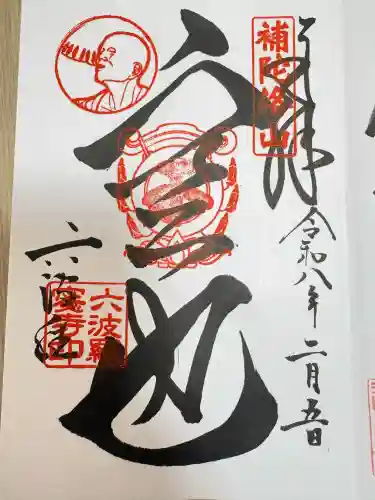 奉拝
補陀洛山
令和八年
二月五日
空也
六波羅
六波羅
蜜寺印